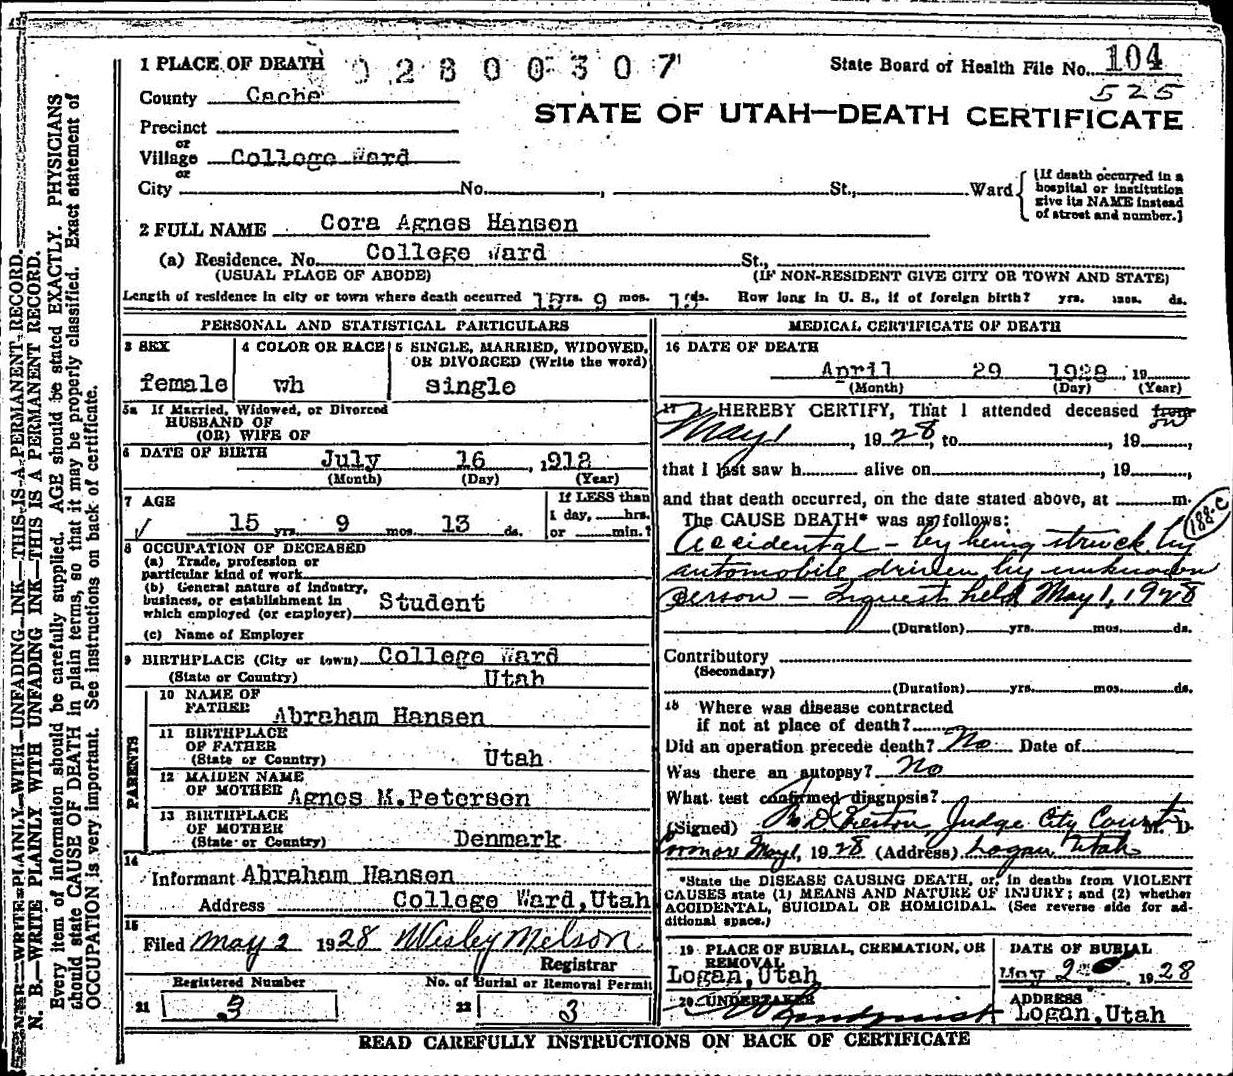 1 PLACE OF DEATH 02800307
State Board of Health File No. 104
525
County Cache
STATE OF UTAH—DEATH CERTIFICATE
Precinct
or
Village College Ward
or
City No. , St., Ward
(If death occurred in a
hospital or institution
give its NAME instead
of street and number.)
2 FULL NAME Cora Agnes Hansen
(a) Residence. No. College Ward St.,
(USUAL PLACE OF ABODE) (IF NON-RESIDENT GIVE CITY OR TOWN AND STATE)
Length of residence in city or town where death occurred 15 yrs. 9 mos. 13 ds. How long in U. S., if of foreign birth? yrs. mos. ds.
PERSONAL AND STATISTICAL PARTICULARS
3 SEX
female
4 COLOR OR RACE
wh
5 SINGLE, MARRIED, WIDOWED,
OR DIVORCED (Write the word)
single
5a If Married, Widowed, or Divorced
HUSBAND OF
(OR) WIFE OF
6 DATE OF BIRTH July 16 , 1912
(Month) (Day) (Year)
7 AGE
15 yrs. 9 mos. 13 ds.
If LESS than
1 day, hrs.
or min.?
8 OCCUPATION OF DECEASED
(a) Trade, profession or
particular kind of work
(b) General nature of industry,
business, or establishment in
which employed (or employer) Student
(c) Name of Employer
9 BIRTHPLACE (City or town) College Ward
(State or Country) Utah
PARENTS
10 NAME OF
FATHER Abraham Hansen
11 BIRTHPLACE
OF FATHER
(State or Country) Utah
12 MAIDEN NAME
OF MOTHER Agnes M. Petersen
13 BIRTHPLACE
OF MOTHER
(State or Country) Denmark
14
Informant Abraham Hansen
Address College Ward, Utah
15
Filed May 2 1928 Wesley Nelson
Registrar
Registered Number No. of Burial or Removal Permit
21 3 22 3
MEDICAL CERTIFICATE OF DEATH
16 DATE OF DEATH
April 29 1928 , 19
(Month) (Day) (Year)
17 I HEREBY CERTIFY, That I attended deceased from
on
May 1 , 1928, to , 19 ,
that I last saw h alive on , 19 ,
and that death occurred, on the date stated above, at m.
The CAUSE DEATH* was as follows: 188-C
Accidental - by being struck by
automobile driven by unknown
person - Inquest held May 1, 1928
(Duration) yrs. mos. ds.
Contributory
(Secondary)
(Duration) yrs. mos. ds.
18 Where was disease contracted
if not at place of death?
Did an operation precede death? No Date of
Was there an autopsy? No
What test confirmed diagnosis?
(Signed) Judge City Court M. D.
May 1, 1928 (Address) Logan Utah
*State the DISEASE CAUSING DEATH, or, in deaths from VIOLENT
CAUSES state (1) MEANS AND NATURE OF INJURY; and (2) whether
ACCIDENTAL, SUICIDAL OR HOMICIDAL. (See reverse side for ad-
ditional space.)
19 PLACE OF BURIAL, CREMATION, OR
REMOVAL
Logan, Utah
DATE OF BURIAL
May 2 1928
20 UNDERTAKER
ADDRESS
Logan, Utah
READ CAREFULLY INSTRUCTIONS ON BACK OF CERTIFICATE
N. B.—WRITE PLAINLY WITH UNFADING INK—THIS IS A PERMANENT RECORD.
Every item of information should be carefully supplied. AGE should be stated EXACTLY. PHYSICIANS
should state CAUSE OF DEATH in plain terms, so that it may be properly classified. Exact statement of
OCCUPATION is very important. See instructions on back of certificate.